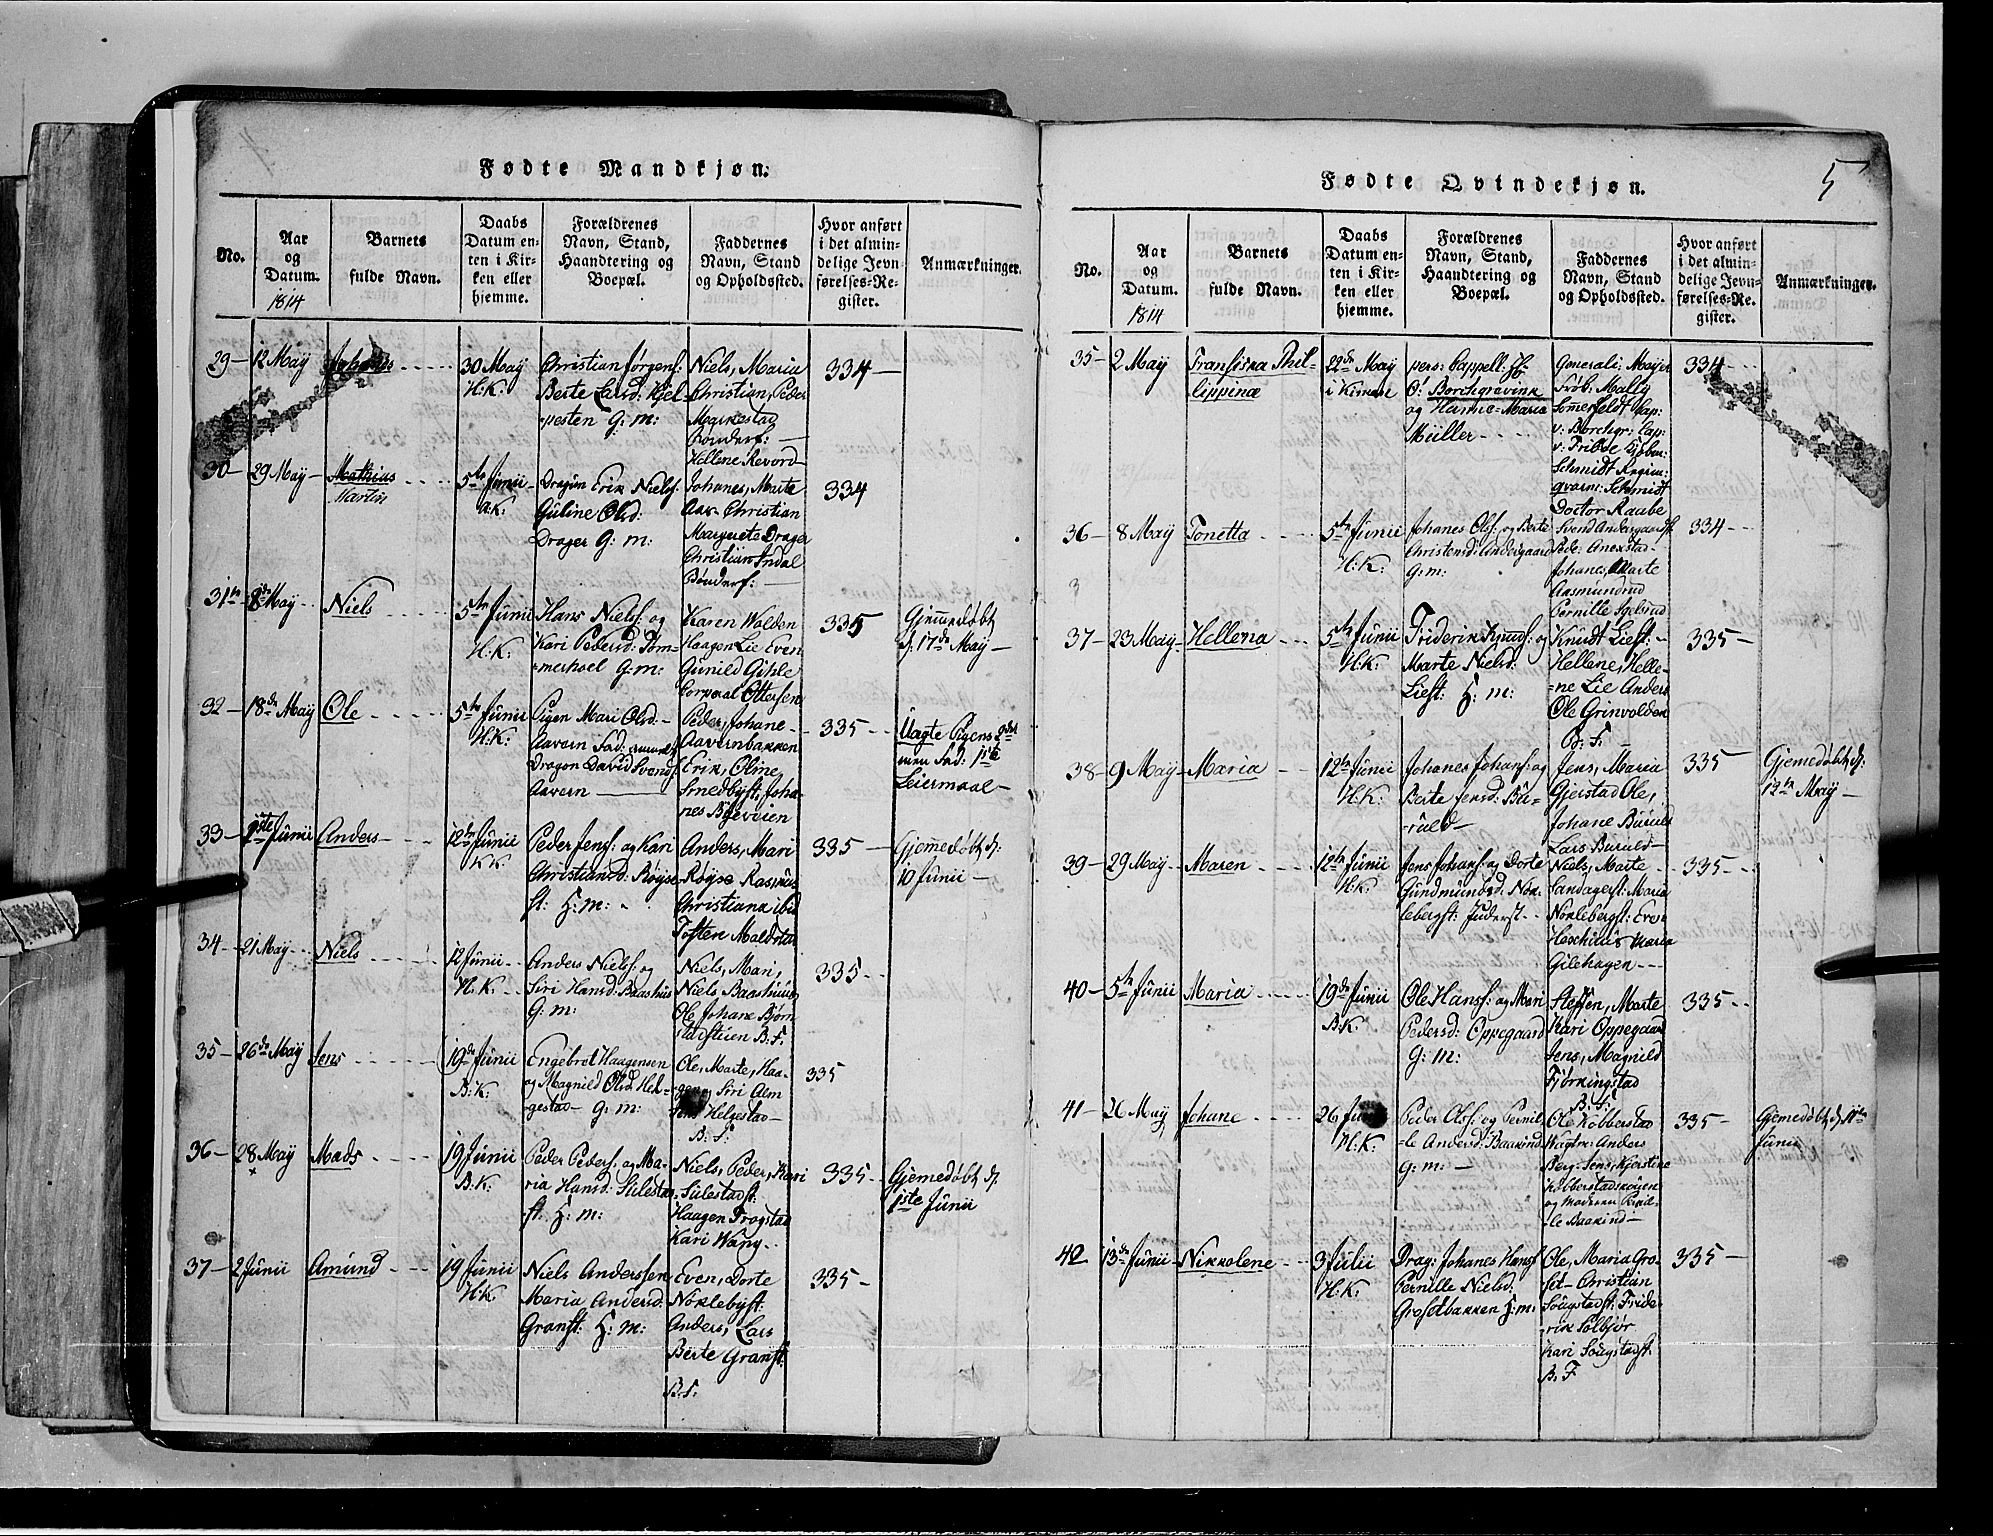 Fødte Mandkjøn.
No.
Aar
og
Datum.
1814
Barnets
fulde Navn.
Daabs
Datum en-
ten i Kir-
ken eller
hjemme.
Forældrenes
Navn, Stand,
Haandtering og
Boepæl.
Faddernes
Navn, Stand
og Opholdssted.
Hvor anført
i det almin-
delige Jevn-
førelses-Re-
gister.
Anmærkninger.
29 – 12 May
Johannes
30 May
H: K:
Christian Jørgens:
Berte Larsd: Hjel-
pesten G: m:
Niels, Maria
Christian, Peder
Markestad
Bönderf:
Hellene Revord
334 –
30 – 29 May –
Mathias
Martin
5te Junii
H: K:
Dragun Erik Nielsf:
Guline Olsd:
Drager G: m:
Johanes, Marte
Aas Christian
Margrete Drager
Christian Indal
Bönderf:
334
31te 8de May
Niels
5te Junii
H: K:
Hans Nielsf: og
Kari Pedersd: Tom-
merhoel G: m:
Karen Wolden
Haagen Lie Even
Gunild Gihle
Corporal Ottersen
335
Gjemmedøbt
d: 17de May –
32 – 18de May
Ole
5te Junii
H: K:
Pigen Mari Olsd: –
Aavern Fad:
Dragon David Svends:
Aavern
Peder, Johane
Aavernbakken
Erik, Oline
Smedbyst, Joha-
nes Bøeveien
335 –
Uagte Pigens 2det
men Fad: 1ste
Leiermaal –
33 – 1ste Junii
Anders –
12te Junii
K: K:
Peder Jensf: og Kari
Christiansd: Røyse
st: H: m:
Anders, Mari
Røyse Rasmus
Christiana ibid
Tosten Malestad
335 –
Gjemedøbt d:
10 Junii –
34 – 21 May –
Niels
12 Junii
H: K:
Anders Nielsf: og
Siri Hansd: Baashus
G: m:
Niels, Mari,
Niels Baashuus
Ole Johane Bjørn
stadstuen B: F:
335 –
35 – 26de May
Jens
19de Junii
B: K:
Engebret Haagensen
og Magnild Olsd: Hel-
gestad – G: m:
Ole, Marte, Haa-
gen, Siri Alm
Jens Helgestad –
B: F:
335
36 – 28 May
Mads
19 Junii
B: K:
Peder Pedersf: og Ma-
ria Hansd: Sulestad
st: H: m:
Niels, Peder, Kari
Sulestadst:
Haagen Frogstad
Kari Wang
335 –
Gjemedøbt d:
1ste Junii
37 – 2 Junii
Amund
19 Junii
H: K:
Niels Anderssen
Maria Andersd:
Granst: H: m:
Even, Dorte
Noklebyst:
Anders, Lars
Berte Granst:
B: F:
335 –
Fødte Qvindekjøn.
5
No.
Aar
og
Datum.
1814
Barnets
fulde Navn.
Daabs
Datum en-
ten i Kir-
ken eller
hjemme.
Forældrenes
Navn, Stand,
Haandtering og
Boepæl.
Faddernes
Navn, Stand
og Opholdssted.
Hvor anført
i det almin-
delige Jevn-
førelses-Re-
gister.
Anmærkninger.
35 – 2 May
Fransiska Phil-
lippinæ
22de May
i Kirken
pers: Cappell:
Borchgrevink
og Hanne Maria
Müller
Generali: Majer
Frøb: Mally
Sommerfeldt Cap:
v: Borchgr: Cap:
v: Pribbe Kjøbm:
Schmidt Regim:
qvarm: Schmidt
Doctor Raabe
334 –
36 – 8 May
Tonetta
5te Junii
H: K:
Johanes Olsf: og Berte
Christensd: Andersgaard
G: m:
Svend Andersgaardst
Pede: Anexstad –
Johanes, Marte
Aasmundrud
Pernille Igelsrud
334 –
3
37 – 23 May –
Hellena
5te Junii
H: K:
Friderik Knuds: og
Marte Nielsd:
Liest: H: m:
Knudt Liest: –
Hellene, Helle-
ne Lie Anders
Ole Grinvolden
B: F:
335 –
38 – 9 May –
Maria
12te Junii
H: K:
Johanes Johansf: og
Berte Jensd: Bu-
ruld –
Jens, Maria
Gjerstad Ole,
Johane Buruld
Lars Buruld –
335
Gjemedøbt d:
12te May –
39 – 29 May –
Maren
12te Junii
H: K:
Jens Johansf: og Dorte
Gundmundsd: Nok-
lebergst: Juderst –
Niels, Marte
Sandagerst: Maria
Noklebergst: Eve-
Haschilius Maria
Gilehagen –
335 –
40 – 5te Junii
Maria
19de Junii
B: K:
Ole Hansf: og Mari
Pedersd: Oppegaard
G: m:
Steffen, Marte
Kari Oppegaard
Jens, Magnild
Fjørkingstad
B: F:
335 –
41 – 26 May
Johane
26 Junii
H: K:
Peder Olsf: og Pernil-
le Andersd: Baakind
G: m: –
Ole Kobberstad
Wagtm: Anders
Berg Jens, Kjerstine
Kobberstadskoven
og Moderen Pernil-
le Baakind –
335 –
Gjemedøbt d: 11te
Junii
42
13de Junii
Nikkolene
3 Julii
H: K:
Drag: Johanes Hansf
Pernille Nielsd
Grosetbakken H: m:
Ole, Maria Gro-
set – Christian
Sougstadst: Fride-
rik Solbjør
Kari Sougstadst.
B. F
335 –